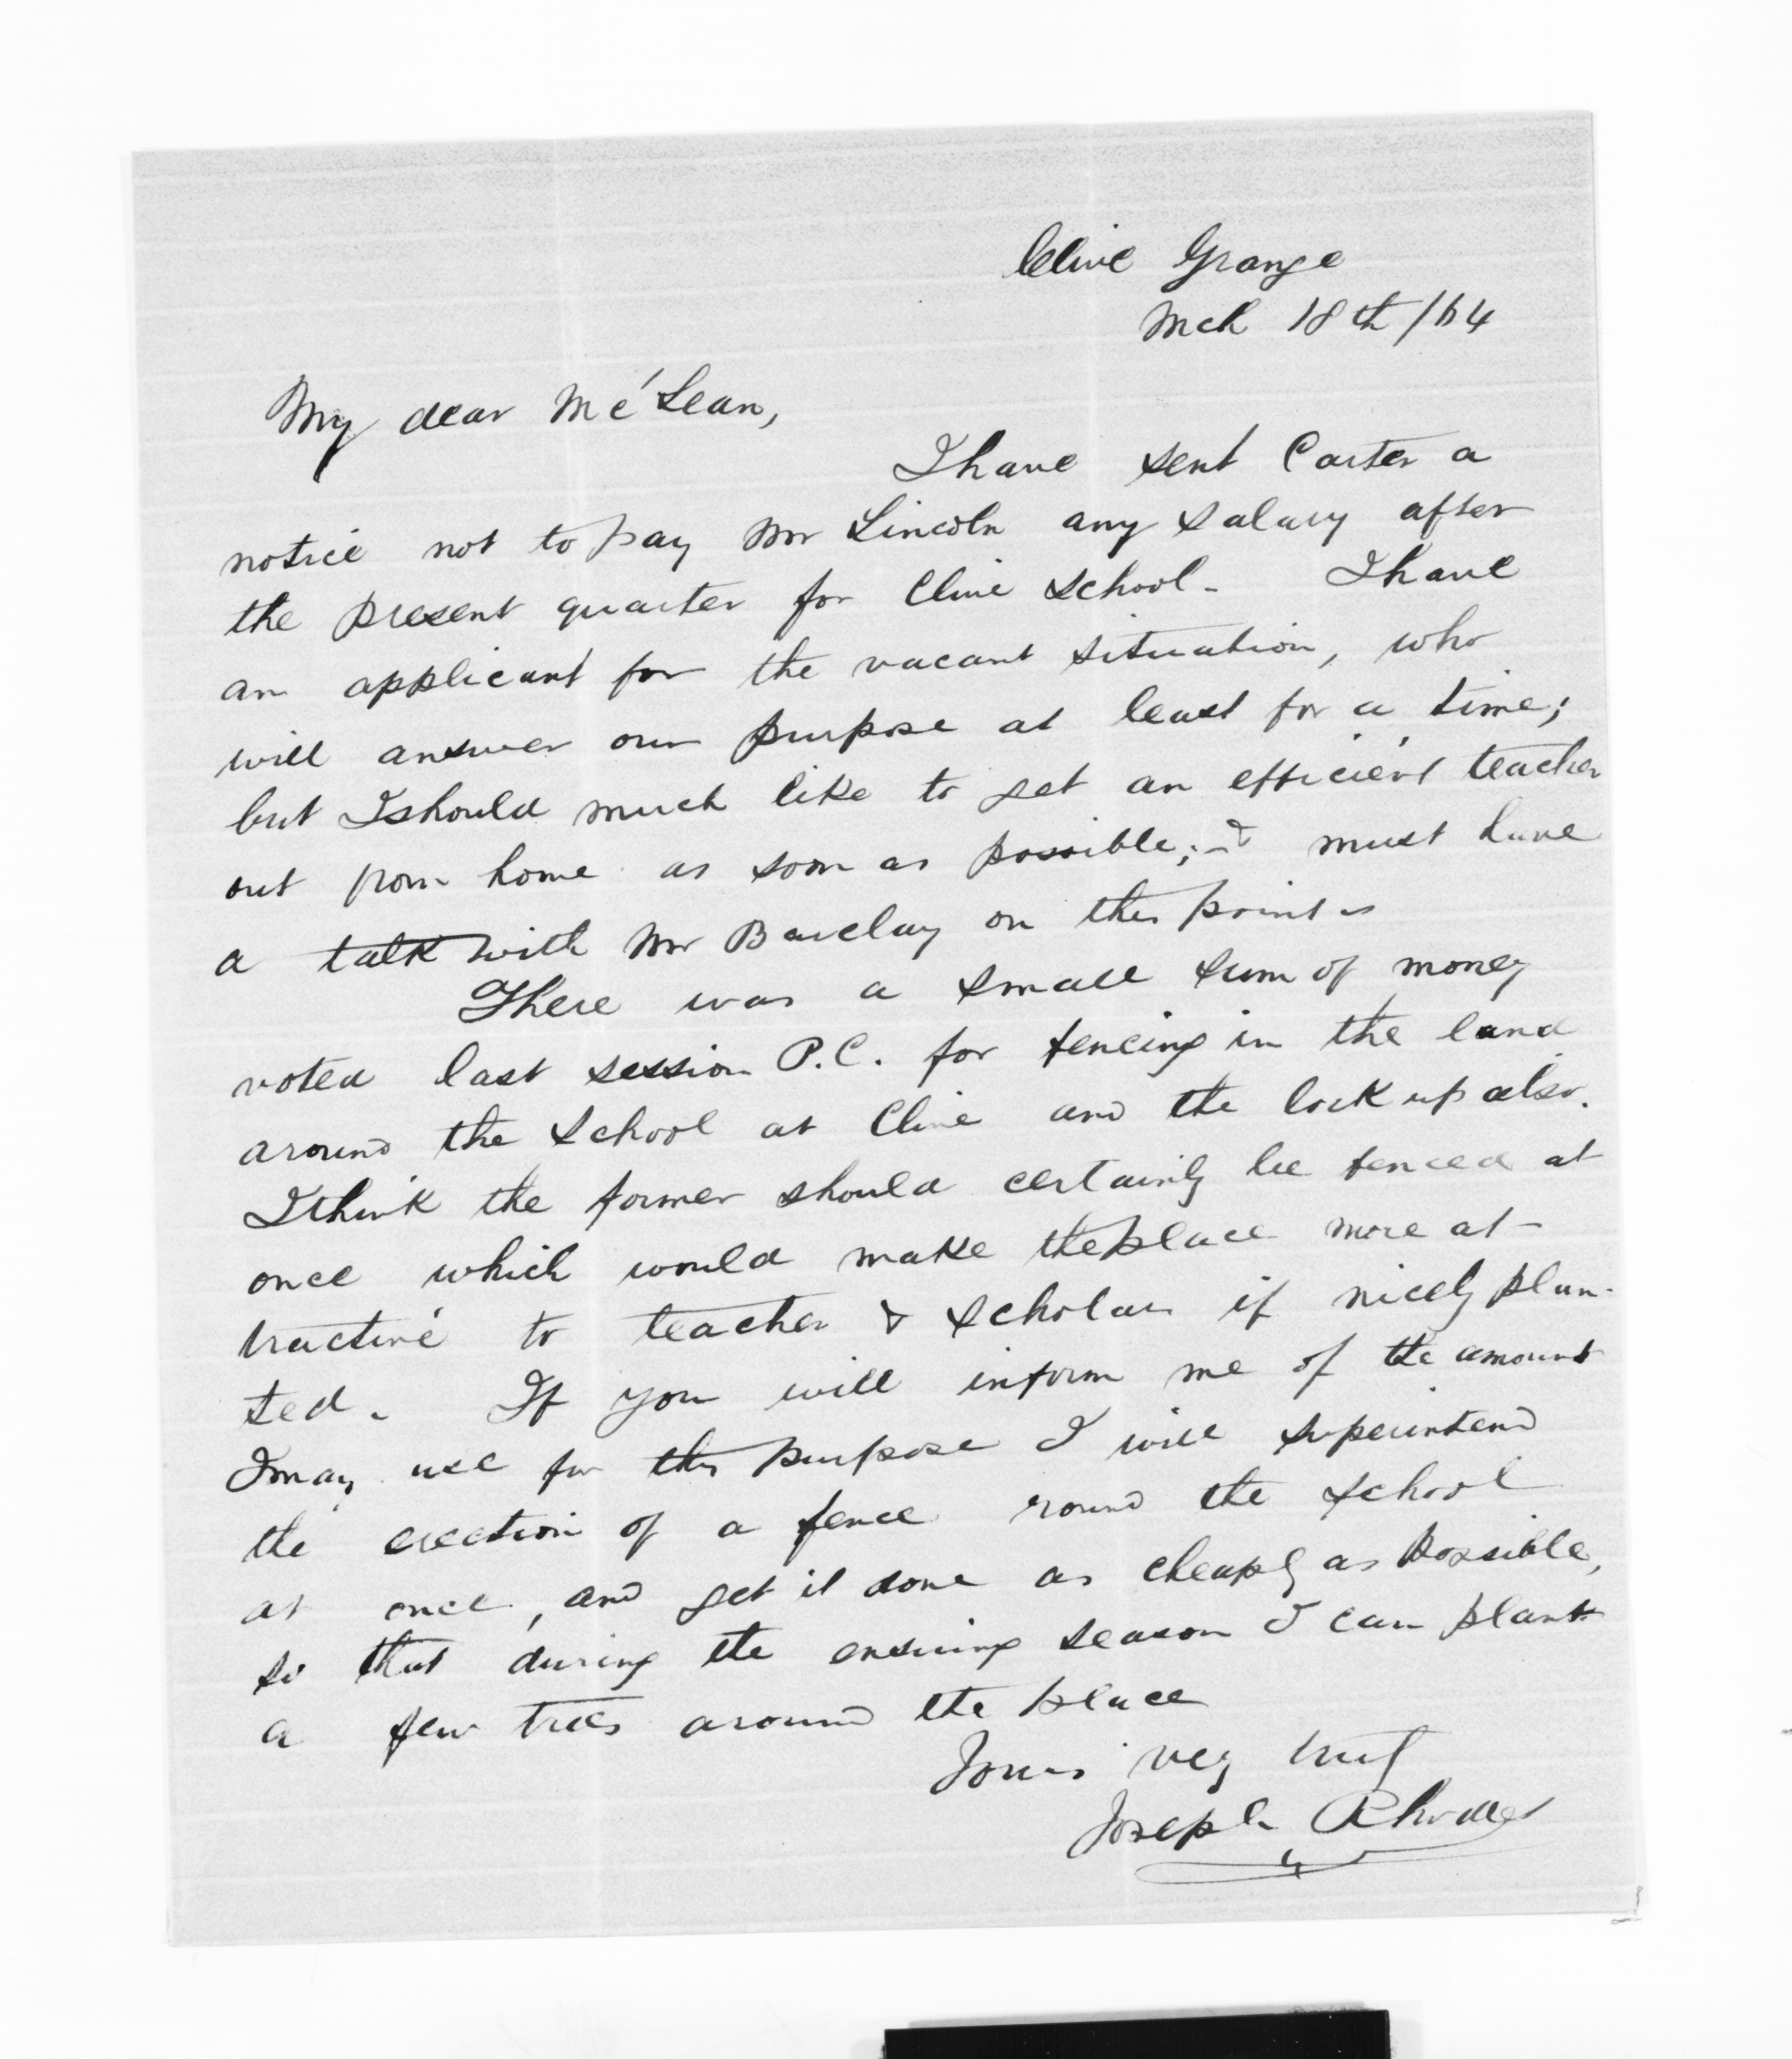 Clive Grange
Mch 18th /64
My dear McLean,
I have sent Carter a
notice not to pay Mr Lincoln any salary after
the present quarter for Clive School - I have
an applicant for the vacant situation, who
will answer our purpose at least for a time;
but I should much like to get an efficient teacher
out from home as soon as possible; - & must have
a talk with Mr Barclay on this point -
There was a small sum of money
voted last session P.C. for fencing in the land
around the School at Clive and the lock up also.
I think the former should certainly be fenced at
once which would make the place more at-
tractive to teacher & scholars if nicely plan-
ted. If you will inform me of the amount
I may use for this purpose I will superintend
the erection of a fence round the school
at once, and get it done as cheaply as possible,
so that during the ensuing season I can plant
a few trees around the place
Yours very truly
Joseph Rhodes